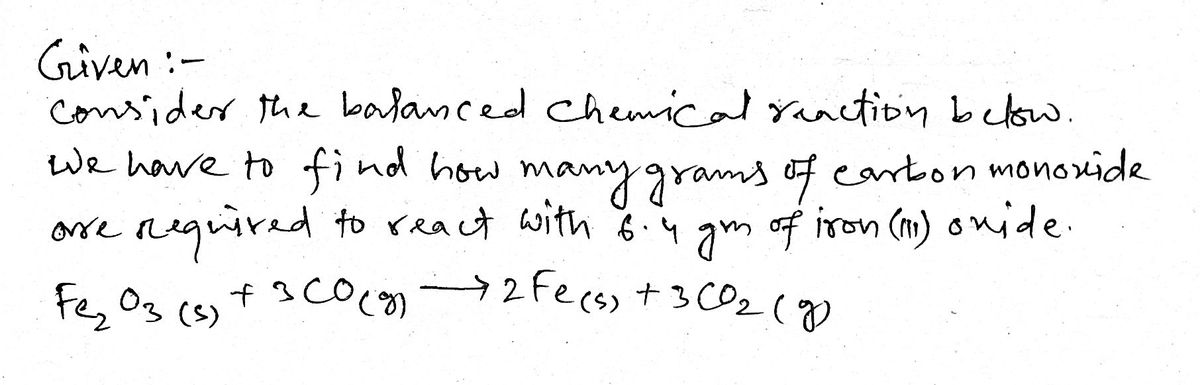 Given :-
consider the balanced chemical reaction below.
We have to find how many grams of carbon monoxide
are required to react with 6.4 gm of iron (III) oxide.
Fe₂O₃ (s) + 3 CO (g) ⟶ 2 Fe (s) + 3 CO₂ (g)